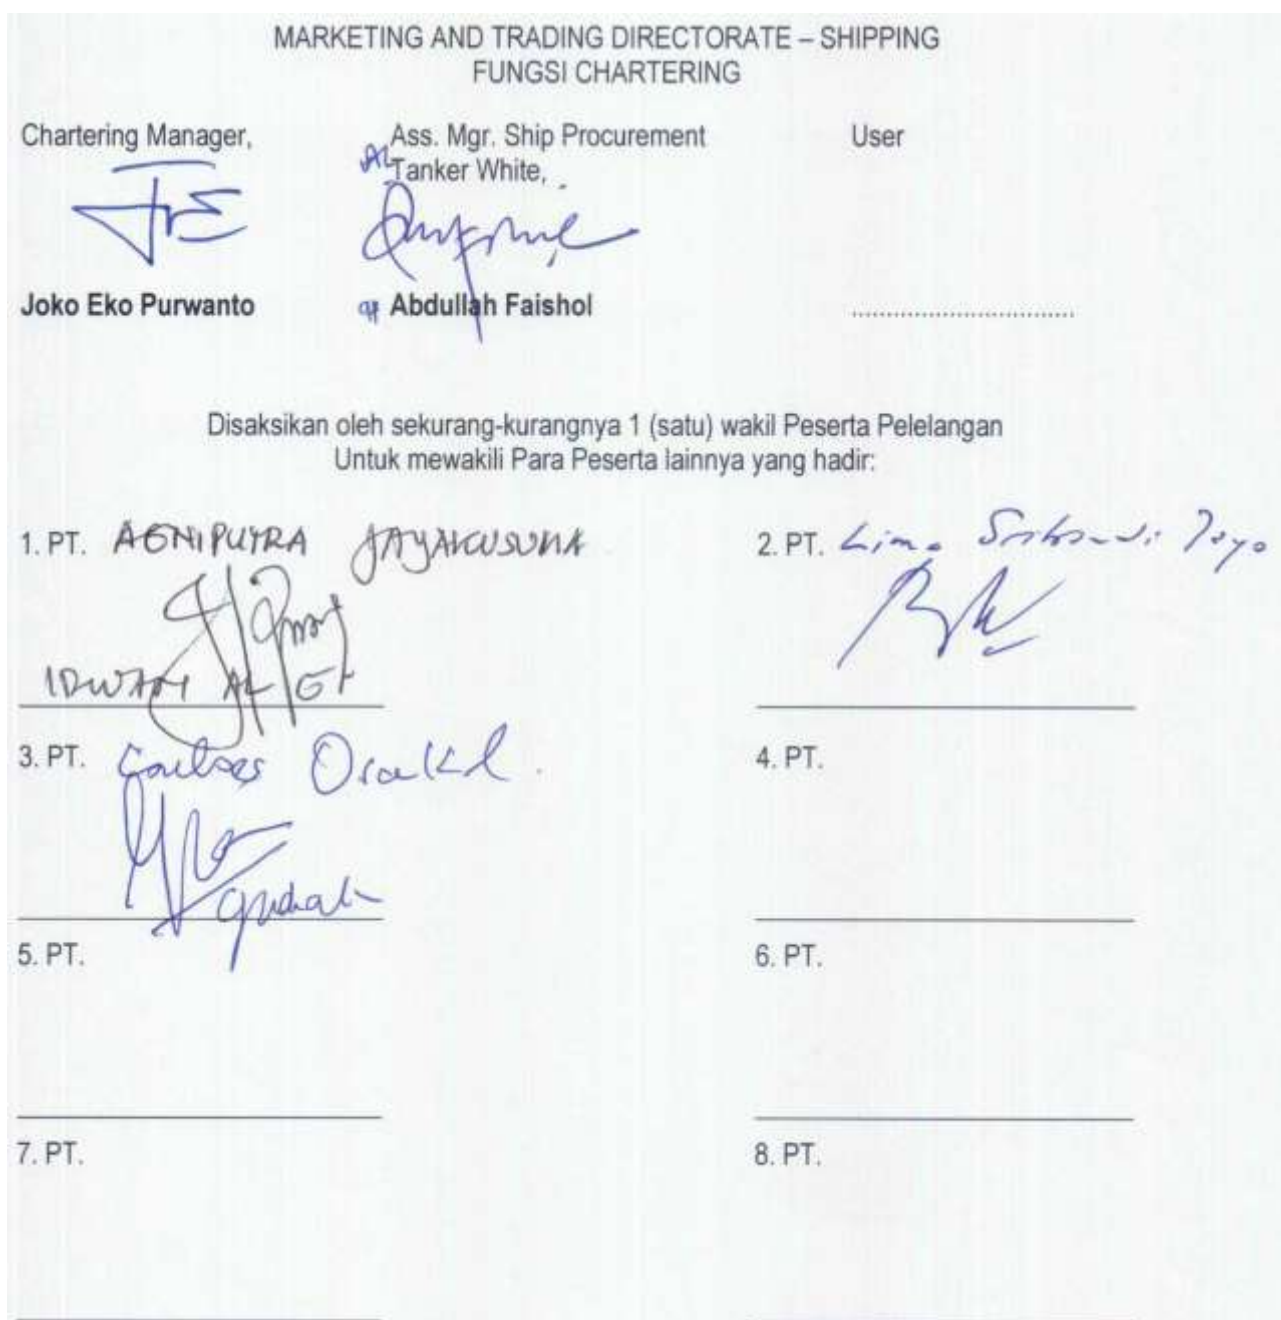 MARKETING AND TRADING DIRECTORATE – SHIPPING
FUNGSI CHARTERING
Chartering Manager, Ass. Mgr. Ship Procurement User
Tanker White,
Joko Eko Purwanto Abdullah Faishol ..............................
Disaksikan oleh sekurang-kurangnya 1 (satu) wakil Peserta Pelelangan
Untuk mewakili Para Peserta lainnya yang hadir:
1. PT. AGNIPUTRA JAYAKUSUMA 2. PT. Lima
3. PT. Orakel 4. PT.
5. PT. 6. PT.
7. PT. 8. PT.